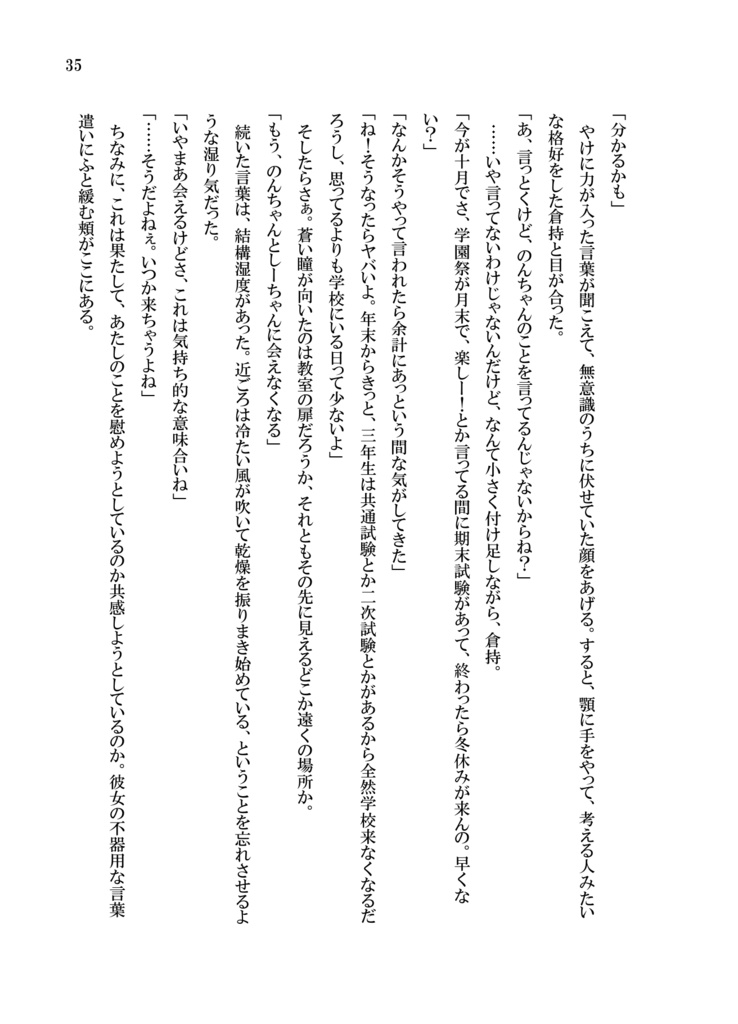 35
「分かるかも」
やけに力が入った言葉が聞こえて、無意識のうちに伏せていた顔をあげる。すると、顎に手をやって、考える人みたい
な格好をした倉持と目が合った。
「あ、言っとくけど、のんちゃんのことを言ってるんじゃないからね？」
……いや言ってないわけじゃないんだけど、なんて小さく付け足しながら、倉持。
「今が十月でさ、学園祭が月末で、楽しー！とか言ってる間に期末試験があって、終わったら冬休みが来んの。早くな
い？」
「なんかそうやって言われたら余計にあっという間な気がしてきた」
「ね！そうなったらヤバいよ。年末からきっと、三年生は共通試験とか二次試験とかがあるから全然学校来なくなるだ
ろうし、思ってるよりも学校にいる日って少ないよ」
そしたらさぁ。蒼い瞳が向いたのは教室の扉だろうか、それともその先に見えるどこか遠くの場所か。
「もう、のんちゃんとしーちゃんに会えなくなる」
続いた言葉は、結構湿度があった。近ごろは冷たい風が吹いて乾燥を振りまき始めている、ということを忘れさせるよ
うな湿り気だった。
「いやまあ会えるけどさ、これは気持ち的な意味合いね」
「……そうだよねぇ。いつか来ちゃうよね」
ちなみに、これは果たして、あたしのことを慰めようとしているのか共感しようとしているのか。彼女の不器用な言葉
遣いにふと緩む頬がここにある。